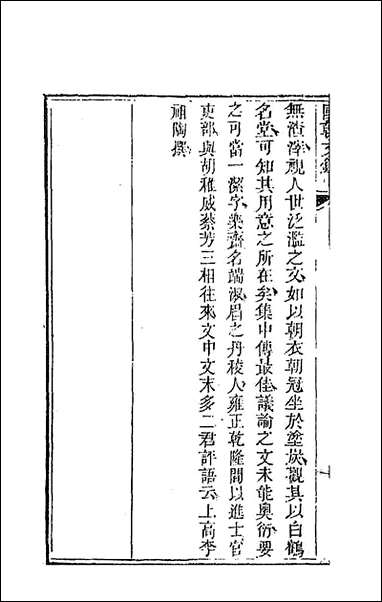 國朝文錄
無渣滓視人世泛濫之文如以朝衣朝冠坐於塗炭觀其以白鶴
名堂可知其用意之所在矣集中傳最佳議論之文未能奧衍要
之可當一潔字樂齋名端淑眉之丹稜人雍正乾隆間以進士官
吏部與胡稚威蔡芳三相往來文中文末多二君評語云上高李
祖陶撰